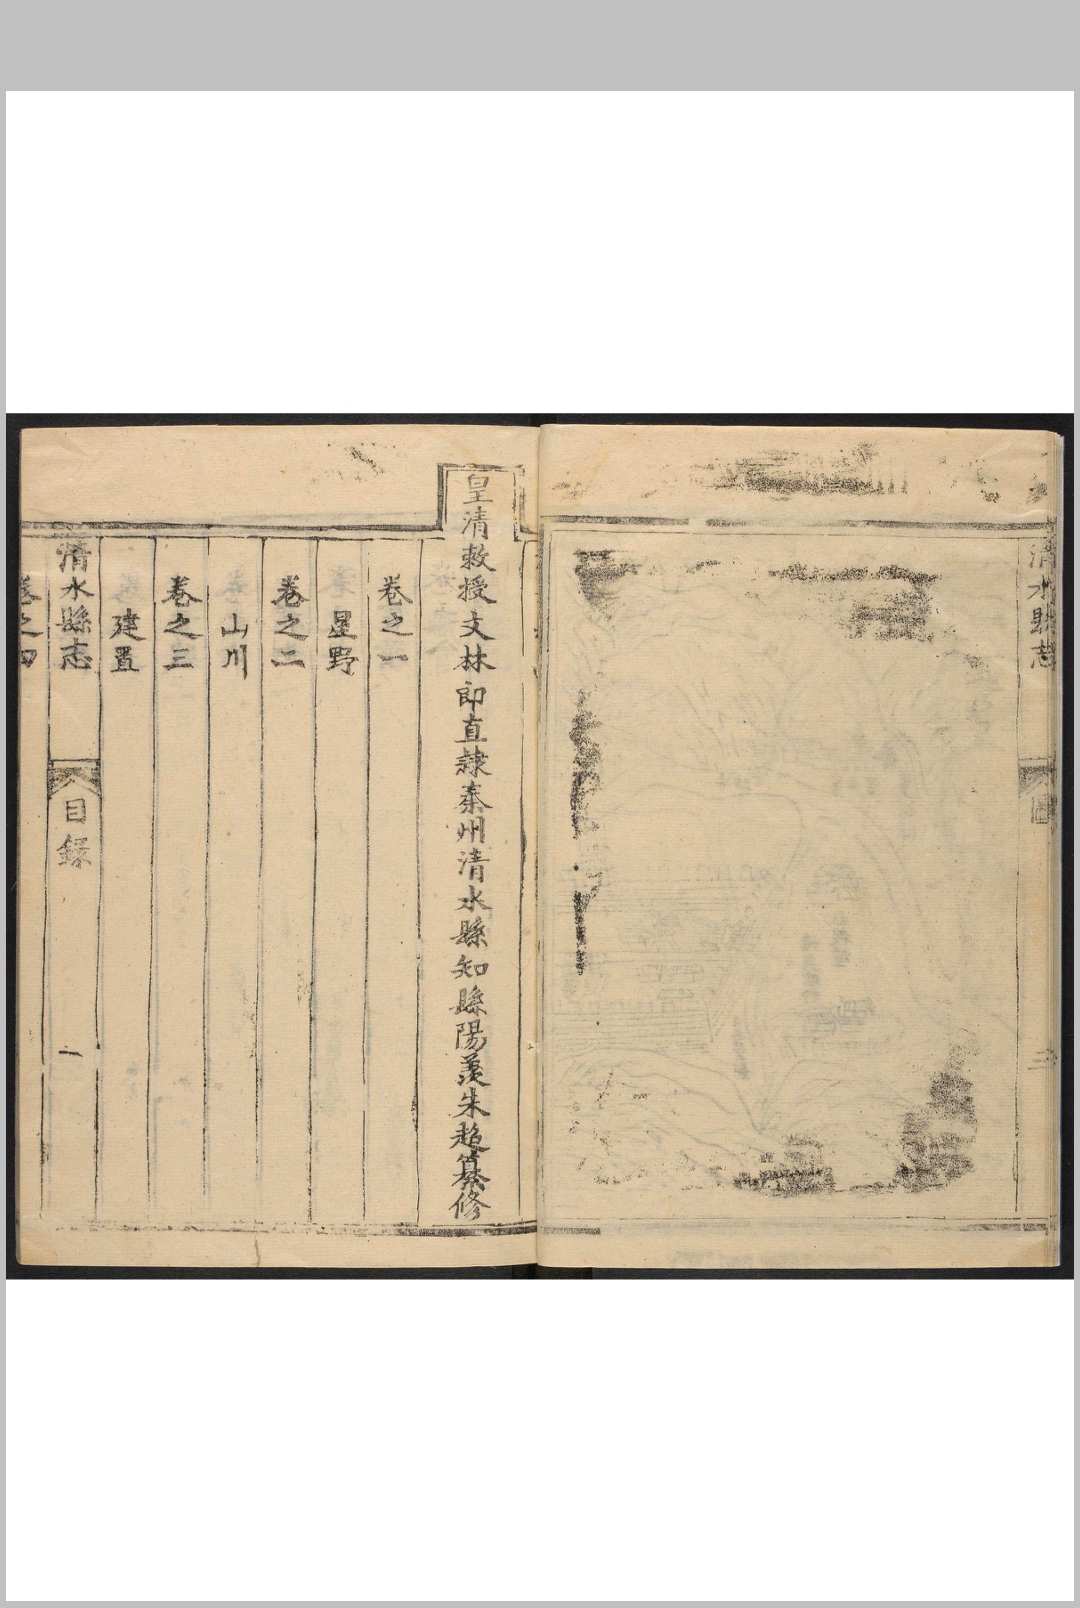 清水縣志
圖
三
皇清敕授文林郎直隸秦州清水縣知縣陽羨朱超纂修
卷之一
星野
卷之二
山川
卷之三
建置
清水縣志
目録
一
卷之四